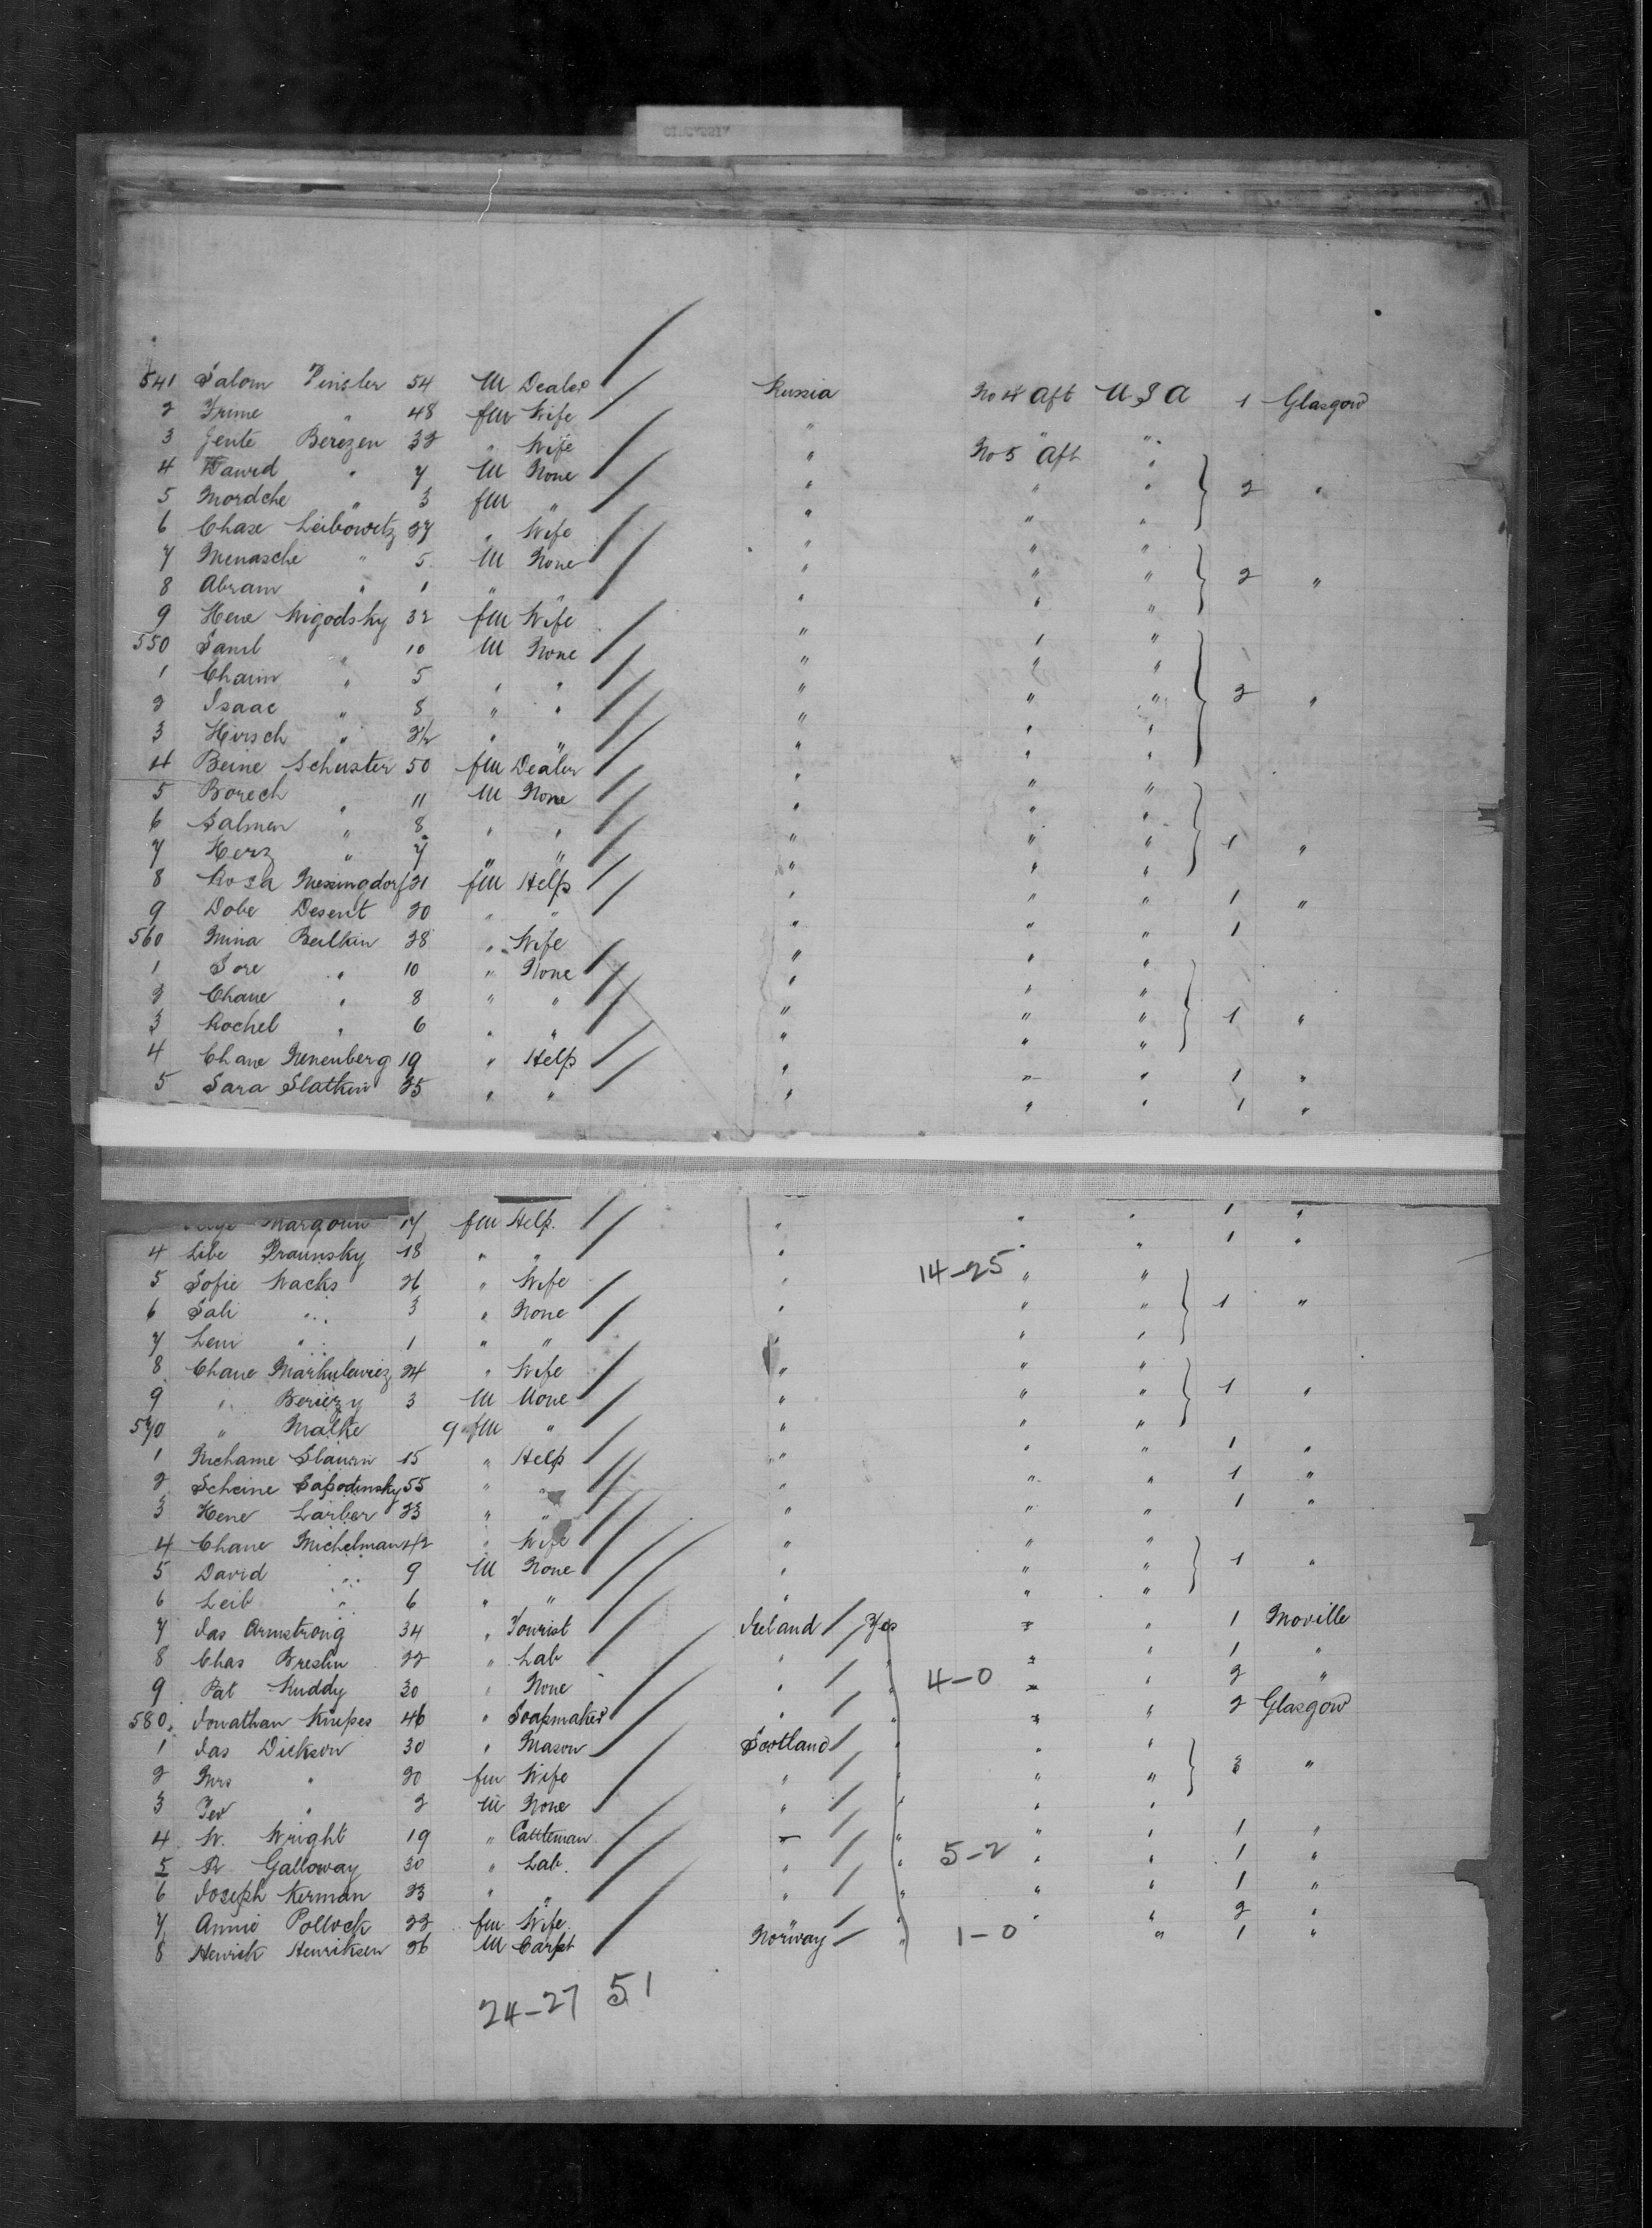 541 Salom Pinsler 54 M Dealer Russia No 4 Aft U S A 1 Glasgow
2 Frime " 48 fm Wife " " "
3 Jente Berezen 32 " Wife " No 5 Aft "
4 Dawid " 7 M None " " " 2 "
5 Mordche " 3 fm " " " "
6 Chase Leibowitz 27 " Wife " " "
7 Menasche " 5 M None " " " 2 "
8 Abram " 1 " " " " "
9 Hene Wigodsky 32 fm Wife " " "
550 Saml " 10 M None " " "
1 Chaim " 5 " " " " " 2 "
2 Isaac " 8 " " " " "
3 Hirsch " 2½ " " " " "
4 Beine Schuster 50 fm Dealer " " "
5 Borech " 11 M None " " "
6 Salmen " 8 " " " " " 1 "
7 Herz " 7 " " " " "
8 Rosa Messingdorf 21 fm Help " " " 1 "
9 Dobe Desent 20 " " " " " 1
560 Mina Beilkin 28 " Wife " " "
1 Sore " 10 " None " " "
2 Chane " 8 " " " " " 1 "
3 Rochel " 6 " " " " "
4 Chane Nenenberg 19 " Help " " " 1 "
5 Sara Slatkin 25 " " " " " 1 "
Margolin 17 fm Help. " " " 1 "
4 Libe Praunsky 18 " " " " " 1 "
5 Sofie Wacks 26 " Wife " 14-25 " "
6 Sali " 3 " None " " " 1 "
7 Leni " 1 " " " " "
8 Chane Markulewiez 24 " Wife " " "
9 " Beriezy 3 M None " " " 1 "
570 " Malke 9 " fm " " " "
1 Nechame Slawin 15 " Help " " " 1 "
2 Scheine Sapodinsky 55 " " " " " 1 "
3 Hene Larber 23 " " " " " 1 "
4 Chane Michelman 42 " Wife " " "
5 David " 9 M None " " " 1 "
6 Leib " 6 " " " " "
7 Jas Armstrong 34 " Tourist Ireland Yes " " 1 Moville
8 Chas Breslin 22 " Lab " " " " 1 "
9 Pat Ruddy 30 " None " " 4-0 " " 2 "
580 Jonathan Knipes 46 " Soapmaker " " " " 2 Glasgow
1 Jas Dickson 30 " Mason Scotland " " "
2 Mrs " 20 fm Wife " " " " 3 "
3 Tev " 2 M None " " " "
4 W. Wright 19 " Cattleman " " " " 1 "
5 A Galloway 30 " Lab. " " 5-2 " " 1 "
6 Joseph Kerman 23 " " " " " " 1 "
7 Annie Pollock 22 fm Wife " " " 2 "
8 Henrik Henriksen 26 M Carpt Norway " 1-0 " 1 "
24-27 51